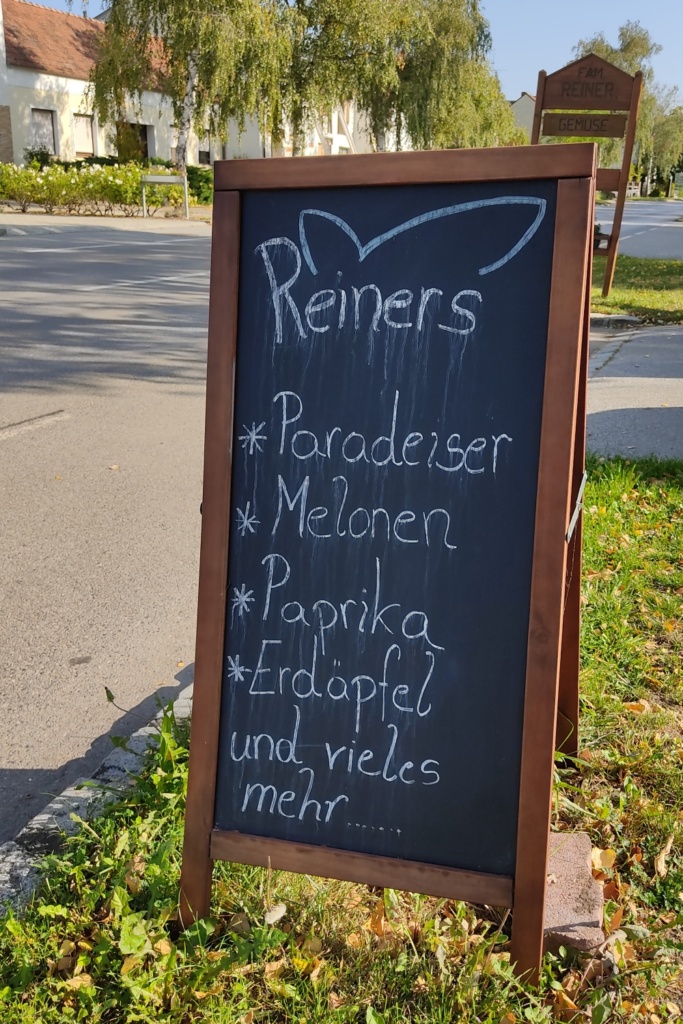 FAM.
REINER
GEMÜSE
Reiners
* Paradeiser
* Melonen
* Paprika
* Erdäpfel
und vieles
mehr.......